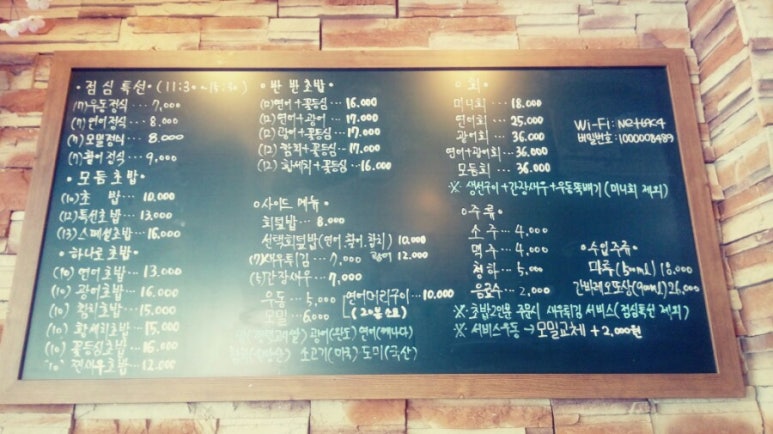 • 점심특선 (11:30~15:30)
(7) 우동정식 … 7,000
(7) 연어정식 … 8.000
(7) 모밀정식 … 8.000
(7) 활어정식 … 9,000
• 모둠초밥
(10) 초 밥 … 10,000
(12) 특선초밥 … 13.000
(13) 스페셜초밥 … 16,000
• 하나로초밥
(10) 연어초밥 … 13.000
(10) 광어초밥 … 16.000
(10) 참치초밥 … 15.000
(10) 황새치초밥 … 15,000
(10) 꽃등심초밥 … 16.000
(10) 초밥 … 12.000
• 반반초밥
(12) 연어+꽃등심 … 16.000
(12) 연어+광어 … 17.000
(12) 광어+꽃등심 … 17.000
(12) 참치+꽃등심 … 17.000
(12) 황새치+꽃등심 … 16.000
• 사이드 메뉴
회덮밥 … 8.000
선택회덮밥 (연어.활어.참치) 10,000
(7) 새우튀김 … 7,000 광어 12.000
간장새우 … 7,000
우동 … 5,000 연어머리구이 … 10.000
모밀 … 6.000 (20분소요)
광어(완도) 연어(캐나다)
소고기(미국) 도미(국산)
• 회
미니회 … 18.000
연어회 … 25.000
광어회 … 36.000
연어+광어회 … 36.000
모듬회 … 36.000
※ 생선구이+간장새우+우동뚝배기 (미니회 제외)
• 주류
소주 … 4,000
맥주 … 4.000
청하 … 5.000
음료수 … 2,000
※ 초밥2인분 주문시 새우튀김 서비스 (점심특선 제외)
※ 서비스우동 → 모밀교체 + 2,000원
Wi-Fi:
비밀번호 : 1000008489
• 수입주류
18,000
간바레오또상(900ml) 26,000